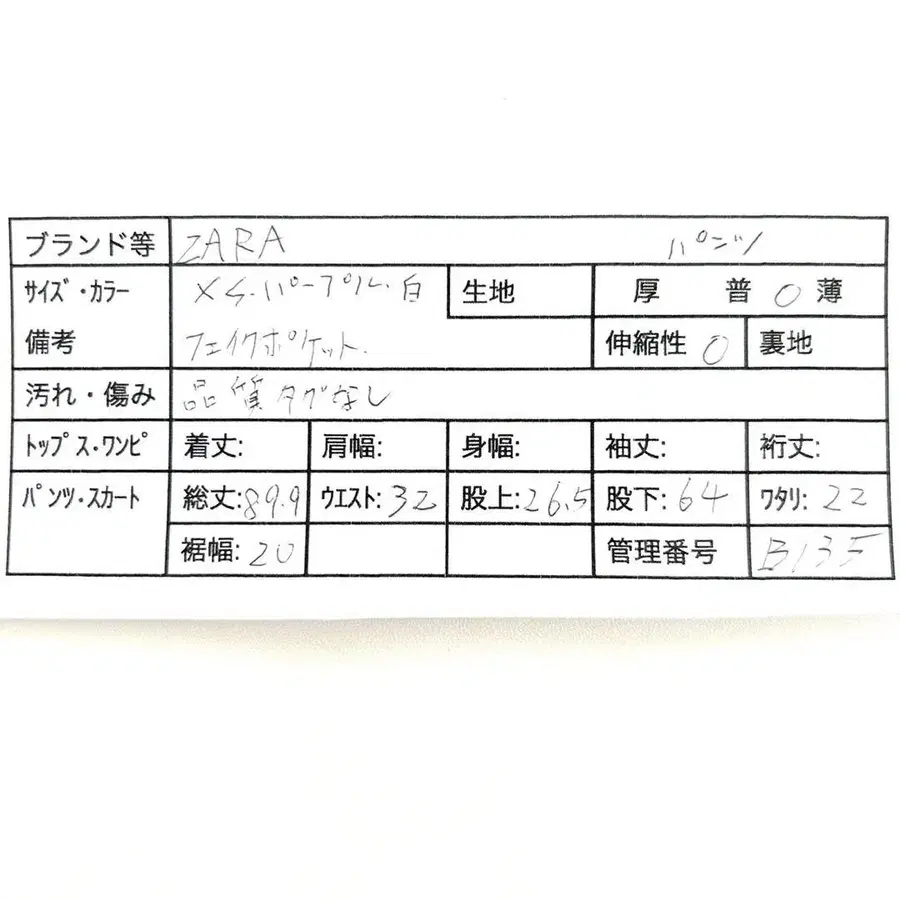 ブランド等 ZARA パンツ
サイズ・カラー XS・パープル・白 生地 厚 普 〇 薄
備考 フェイクポケット. 伸縮性 〇 裏地
汚れ・傷み 品質タグなし
トップス・ワンピ 着丈: 肩幅: 身幅: 袖丈: 裄丈:
パンツ・スカート 総丈:89.9 ウエスト:32 股上:26.5 股下:64 ワタリ:22
裾幅:20 管理番号 B135